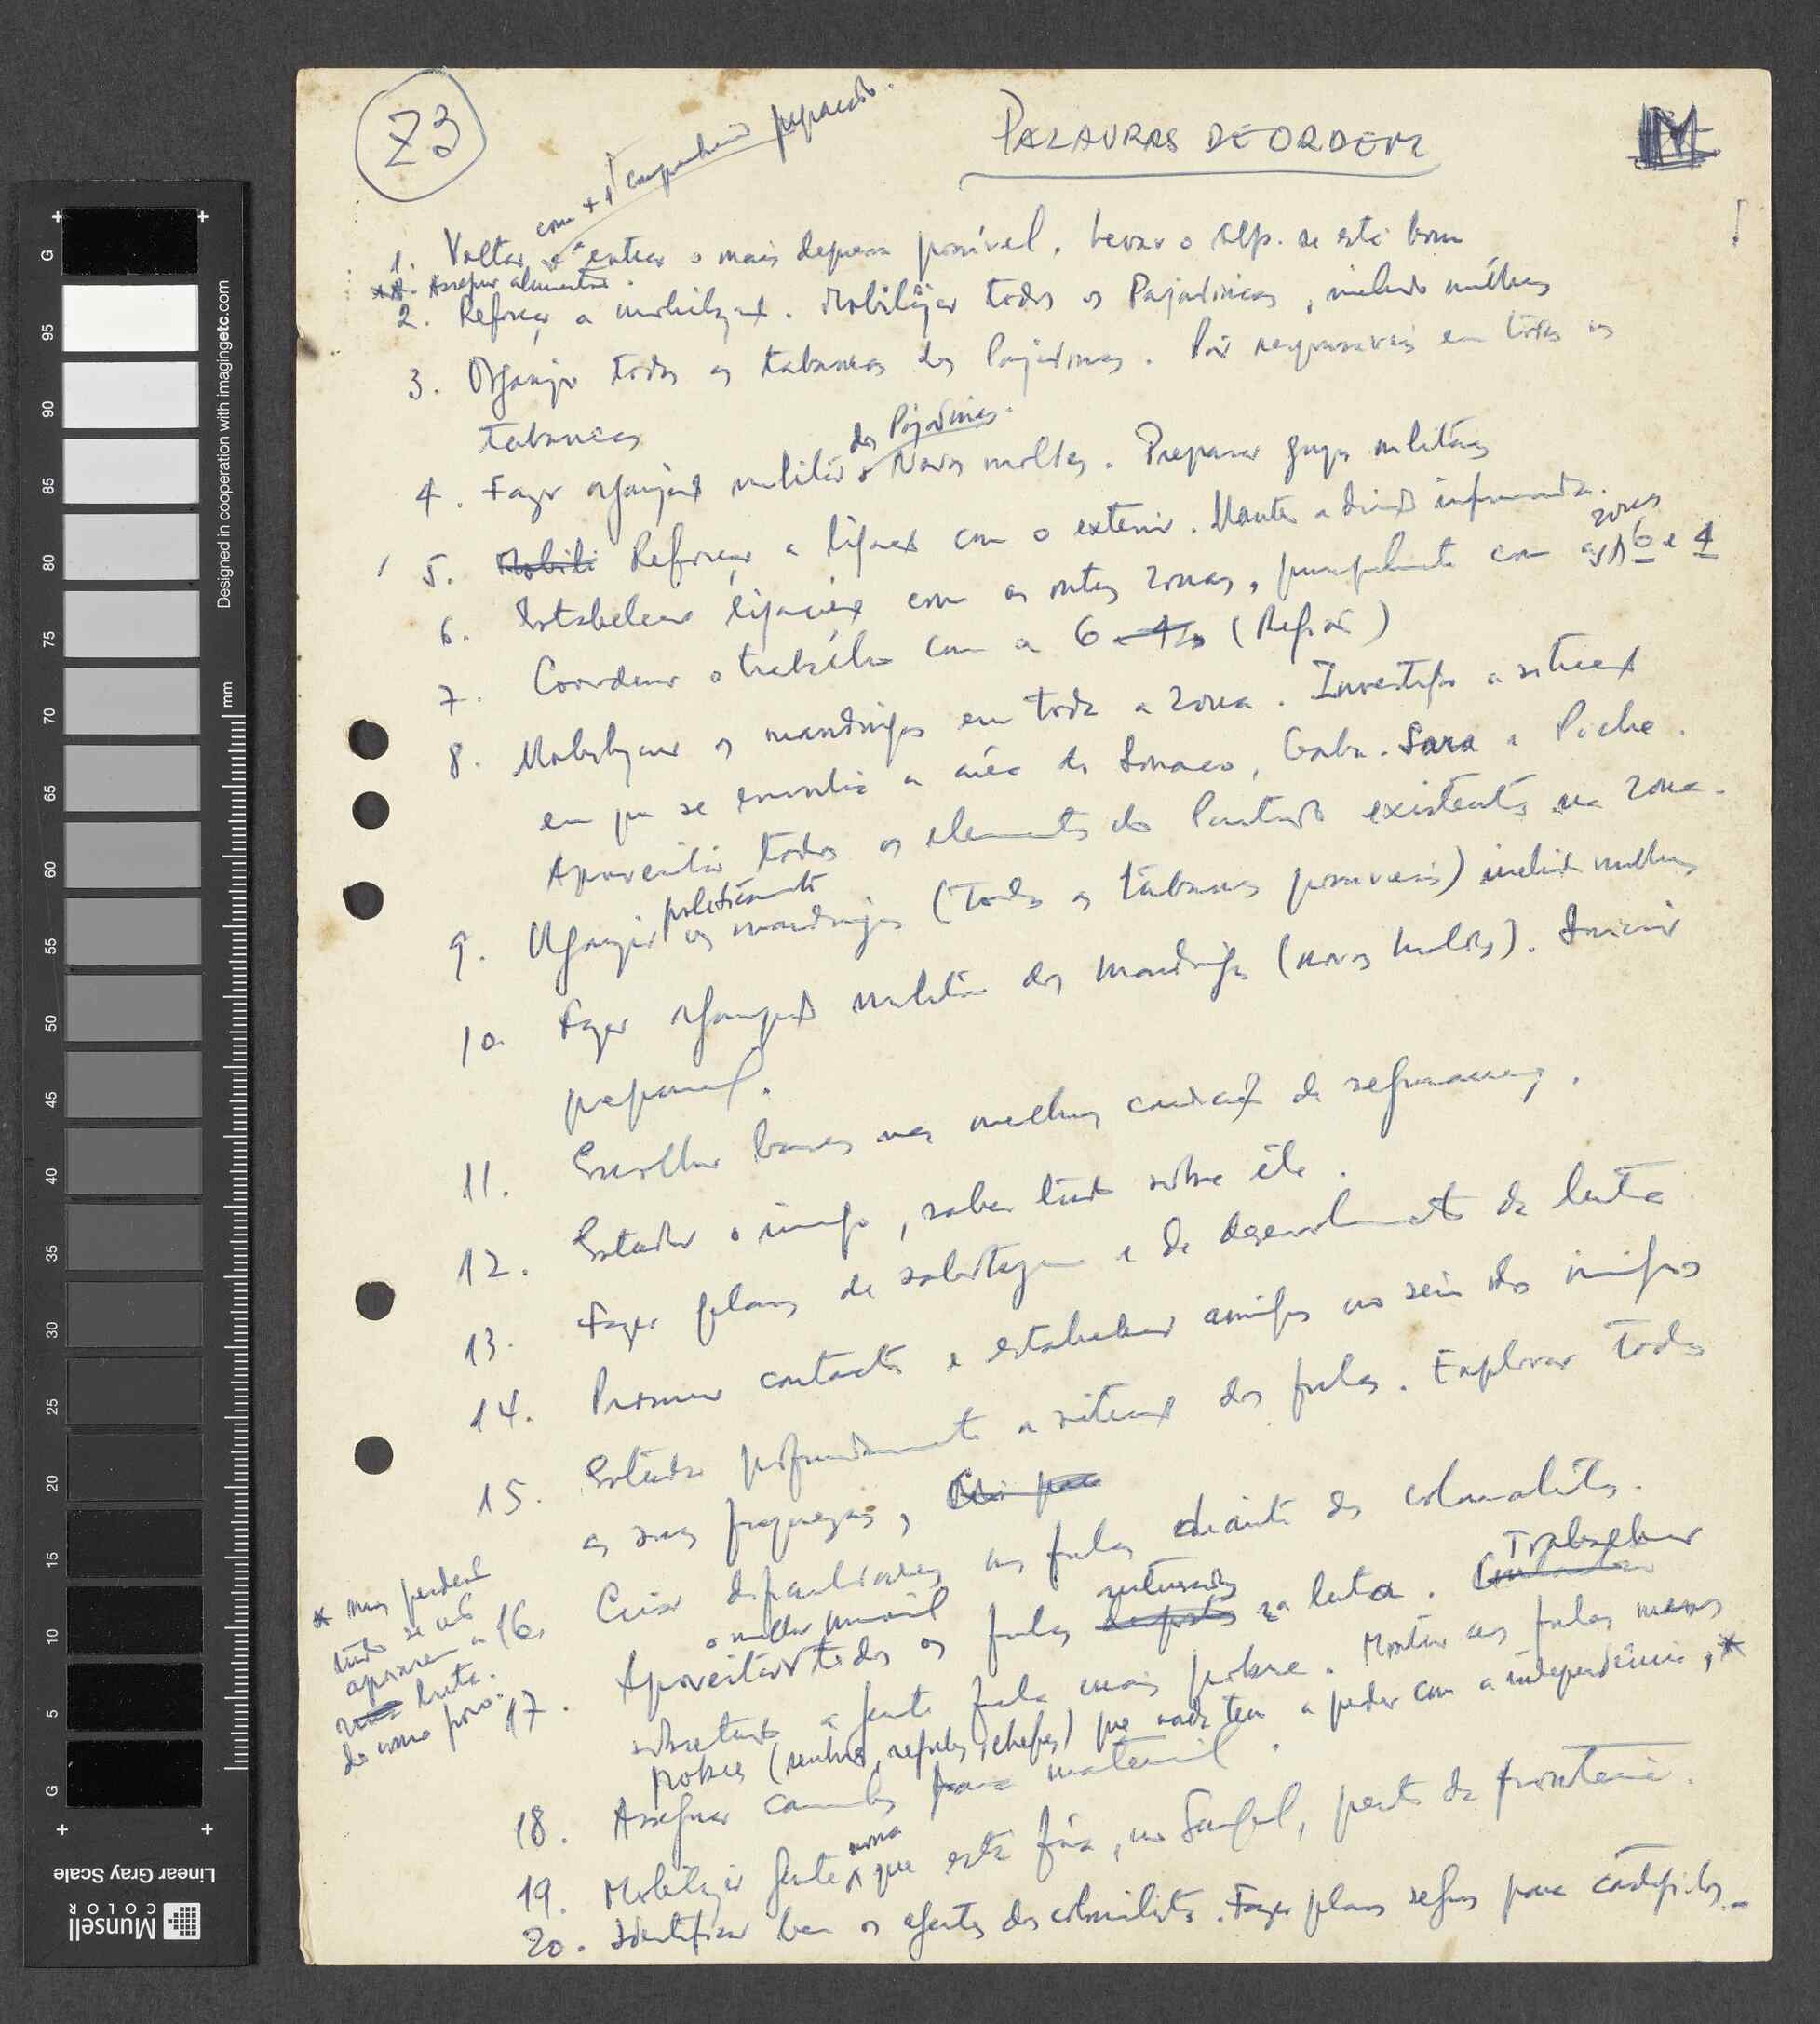 Z3
PALAVRAS DE ORDEM
com + 1 companheiro preparado.
1. Voltar a entrar o mais depressa possível. Levar o se está bom
Assegurar alimentação.
2. Reforçar a mobilização. Mobilizar todos os Pajadincas, incluindo mulheres
3. Organizar todas as tabancas dos Pajadincas. Pôr responsáveis em todas as
tabancas
dos Pajadincas.
4. Fazer organização militar Novos moldes. Preparar grupos militares
5. Mobili Reforçar a ligação com o exterior. Manter a direcção informada.
zonas
6. Estabelecer ligações com as outras zonas, principalmente com as 6 e 4
7. Coordenar o trabalho com a 6 (Rafael)
8. Mobilizar os mandingas em toda a zona. Investigar a situação
em que se encontra a área de Sonaco, Gabu-Sara e Piche.
Aproveitar todos os elementos do Partido existentes na zona.
politicamente
9. Organizar os mandingas (Todas as tabancas possíveis) incluindo mulheres
10. Fazer organização militar dos mandingas (novos moldes). Iniciar
preparação.
11. Escolher bases nas melhores condições de segurança.
12. Estudar o inimigo, saber tudo sobre êle.
13. Fazer planos de sabotagem e de desenvolvimento da luta
14. Procurar contactos e estabelecer amigos no seio dos inimigos
15. Estudar profundamente a situação dos fulas. Explorar todas
as suas fraquezas,
16. Criar dificuldades aos fulas diante dos colonialistas.
o melhor possível
interessados
Trabalhar
17. Aproveitar todos os fulas na luta.
sobretudo a gente fula mais pobre. Mostrar aos fulas menos
pobres (senhores, régulos, chefes) que nada tem a perder com a independência, *
* mas perderão
tudo se não
apoiarem a
luta
do nosso povo.
18. Assegurar caminhos para material.
nossa
19. Mobilizar gente que está fóra, no Senegal, perto da fronteira.
20. Identificar bem os agentes dos colonialistas. Fazer planos seguros para castigá-los.-
Linear Gray Scale
Munsell
COLOR
Designed in cooperation with imagingetc.com
mm
G
95
90
85
80
75
70
65
60
55
50
45
40
35
30
25
20
15
10
5
G